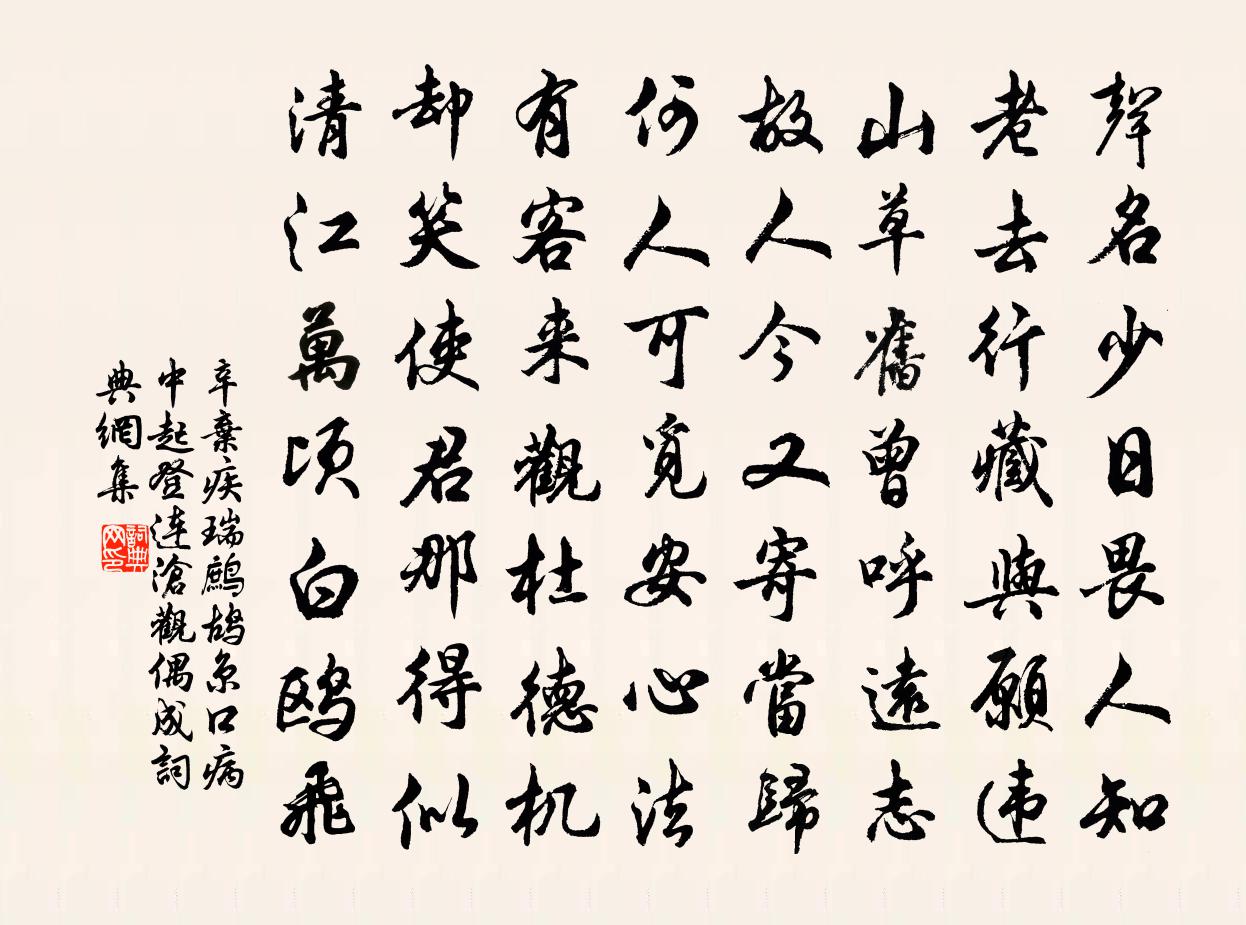 聲名少日畏人知
老去行藏與願違
山草舊曾呼遠志
故人今又寄當歸
何人可覓安心法
有客来觀杜德机
却笑使君那得似
清江萬頃白鷗飛
辛棄疾瑞鷓鴣京口病
中起登連滄觀偶成詞
典網集
詞典
网印